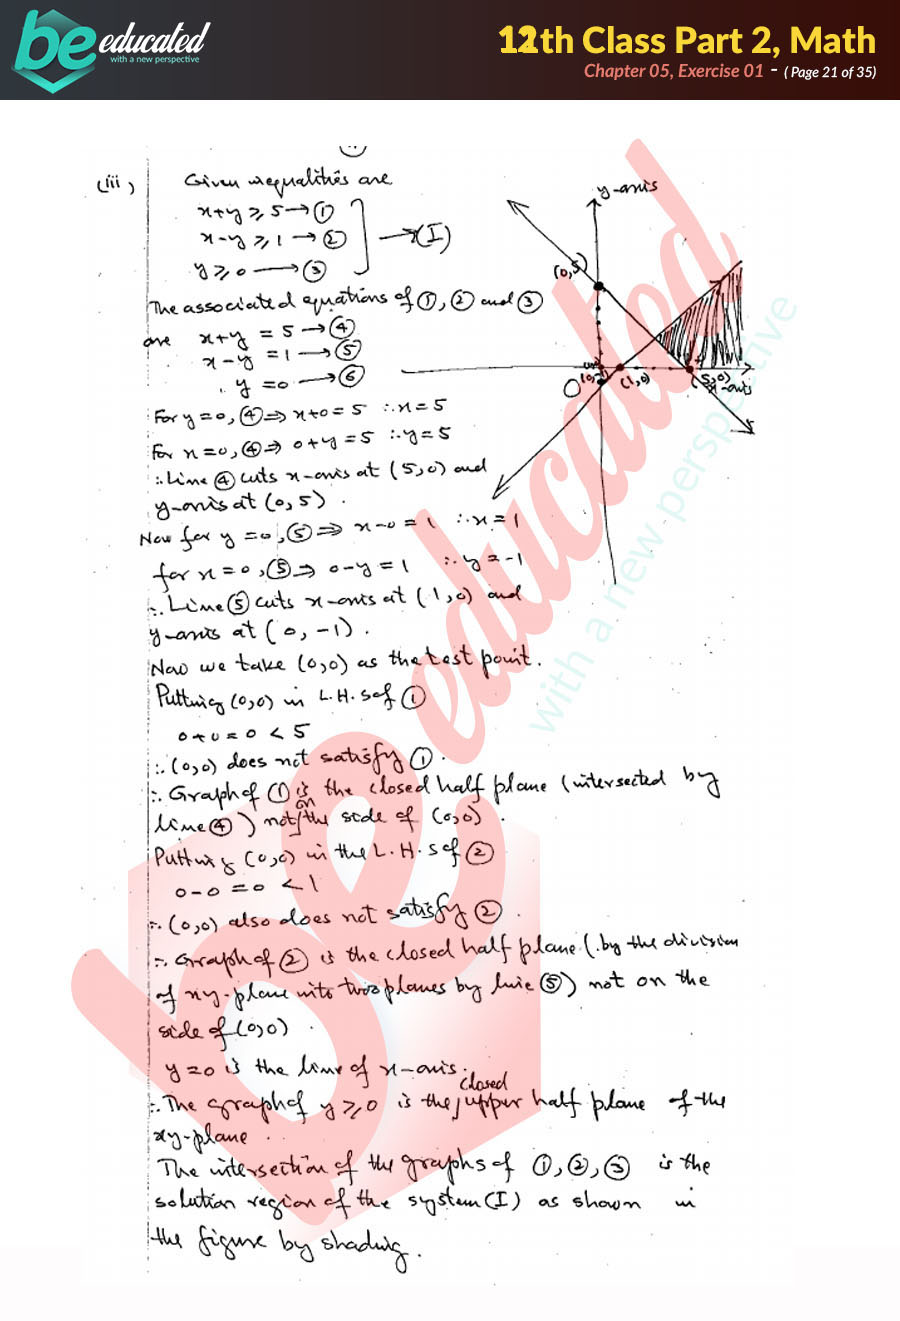 be educated
with a new perspective
12th Class Part 2, Math
Chapter 05, Exercise 01 - ( Page 21 of 35)
(iii) Given inequalities are
x+y ≥ 5 → ①
x-y ≥ 1 → ② → (I)
y ≥ 0 → ③
The associated equations of ①, ② and ③
are x+y = 5 → ④
x-y = 1 → ⑤
y = 0 → ⑥
For y=0, ④ ⇒ x+0=5 ∴ x=5
For x=0, ④ ⇒ 0+y=5 ∴ y=5
∴ Line ④ cuts x-axis at (5,0) and
y-axis at (0,5).
Now for y=0, ⑤ ⇒ x-0=1 ∴ x=1
for x=0, ⑤ ⇒ 0-y=1 ∴ y=-1
∴ Line ⑤ cuts x-axis at (1,0) and
y-axis at (0,-1).
Now we take (0,0) as the test point.
Putting (0,0) in L.H.S of ①
0+0=0 < 5
∴ (0,0) does not satisfy ①.
∴ Graph of ① is the closed half plane (intersected by
line ④) not on the side of (0,0).
Putting (0,0) in the L.H.S of ②
0-0=0 < 1
∴ (0,0) also does not satisfy ②.
∴ Graph of ② is the closed half plane (by the division
of xy-plane into two planes by line ⑤) not on the
side of (0,0).
y=0 is the line of x-axis.
∴ The graph of y ≥ 0 is the closed upper half plane of the
xy-plane.
The intersection of the graphs of ①, ②, ③ is the
solution region of the system (I) as shown in
the figure by shading.
y-axis
(0,5)
O
(0,-1)
(1,0)
(5,0)
x-axis
be educated
with a new perspective